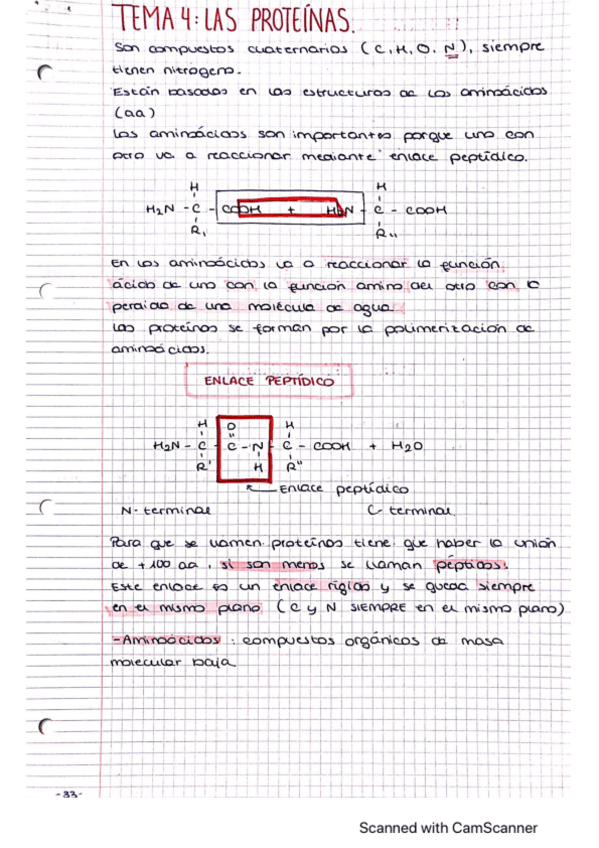 TEMA 4: LAS PROTEÍNAS.
Son compuestos cuaternarios (C, H, O, N), siempre
tienen nitrogeno.
Están basados en las estructuras de los aminoácidos
(aa)
Los aminoácidos son importantes porque uno con
otro va a reaccionar mediante enlace peptídico.
H H
H2N - C - COOH + H2N - C - COOH
R, R,,
En los aminoácidos va a reaccionar la función
ácido de uno con la función amino del otro con la
perdida de una molécula de agua.
Las proteínas se forman por la polimerización de
aminoácidos.
ENLACE PEPTÍDICO
H O H
H2N - C - C - N - C - COOH + H2O
R' H R"
Enlace peptídico
N- terminal C- terminal
Para que se llamen proteínas tiene que haber la unión
de +100 aa, si son menos se llaman péptidos.
Este enlace es un enlace rígido y se queda siempre
en el mismo plano (C y N SIEMPRE en el mismo plano)
-Aminoácidos: compuestos orgánicos de masa
molecular baja
-33-
Scanned with CamScanner